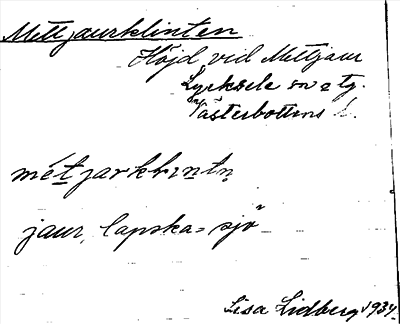 Mettjaurklinten
Höjd vid Mettjaur
Lycksele sn o tg.
Västerbottens l.
métjarklıntṇ
jaur, lapska = sjö
Lisa Lidberg 1934.